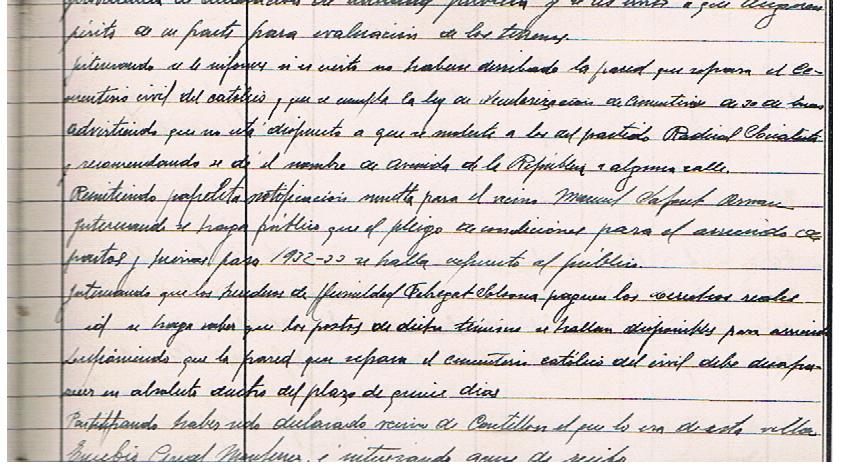 perito de su parte para evaluación de los terrenos
Interesando se le informe si es cierto no haberse derribado la pared que separa el Ce-
menterio civil del católico y que se cumpla la ley de secularización de cementerios de 30 de
advirtiendo que no está dispuesto a que se moleste a los del partido Radical Socialista
y recomendando se dé el nombre de Avenida de la República a alguna calle.
Remitiendo papeleta notificación multa para el vecino Manuel Safont
Interesando se haga público que el pliego de condiciones para el arriendo de
pastos y para 1932-33 se halla expuesto al público.
Interesando que los herederos de Fumildad Fabregat Solsona paguen los derechos reales
id. se haga saber que los pastos de dicho término se hallan disponibles para arriendo
Disponiendo que la pared que separa el cementerio católico del civil debe desapa-
recer en absoluto dentro del plazo de quince días
Participando haber sido declarado vecino de Castellón el que lo era de esta villa
Eusebio e interesando acuse de recibo